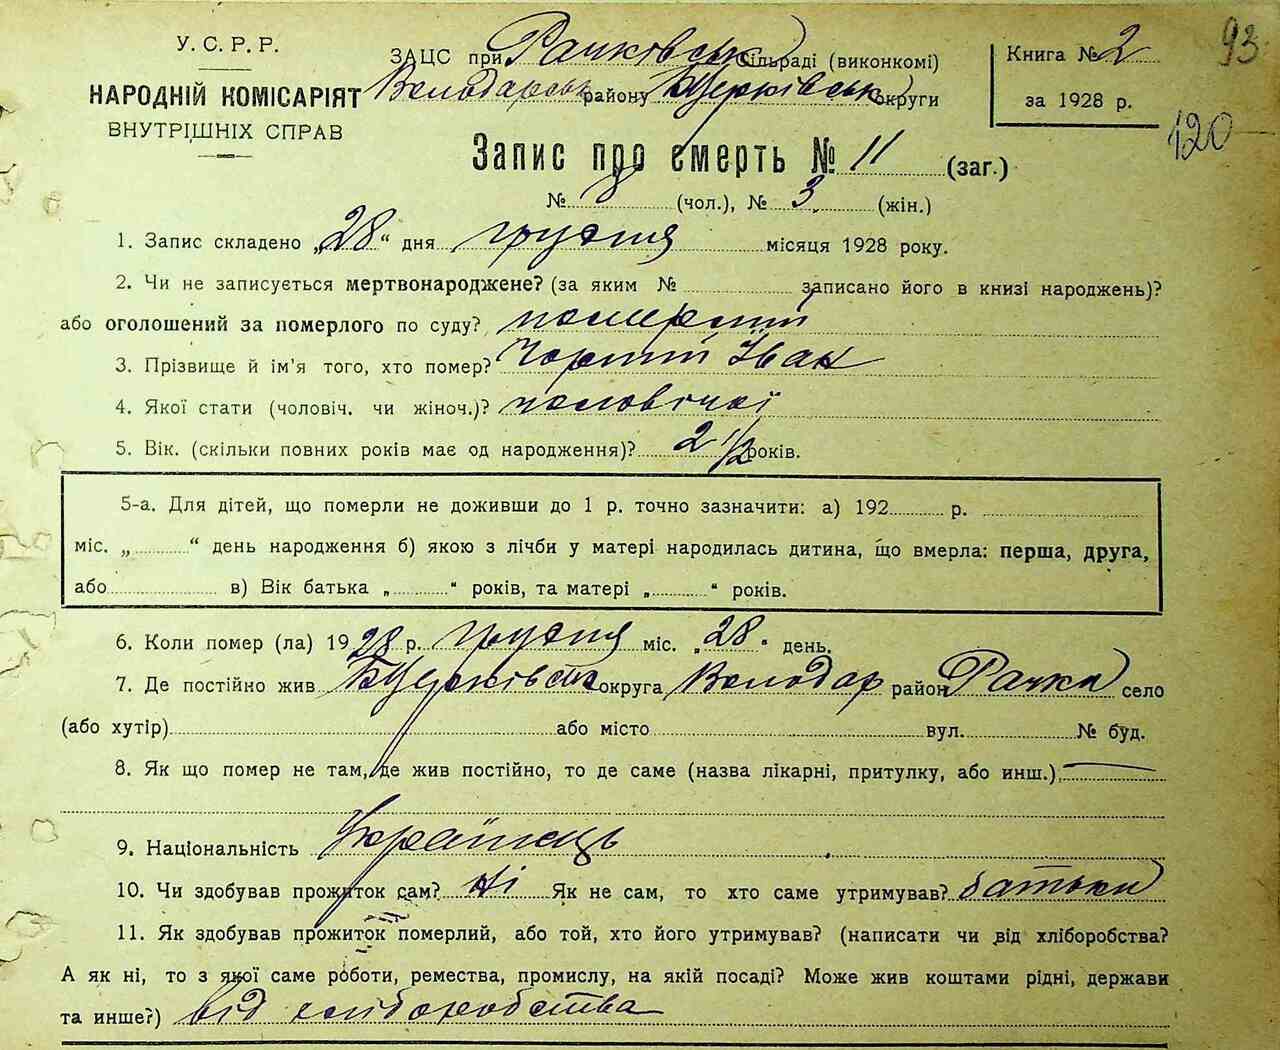 93
У.С.Р.Р.
НАРОДНІЙ КОМІСАРІЯТ
ВНУТРІШНІХ СПРАВ
ЗАЦС при Рачківськ Сільраді (виконкомі)
Володарськ району БЦерківськ округи
Книга № 2
за 1928 р.
120
Запис про смерть № 11 (заг.)
№ 8 (чол.), № 3 (жін.)
1. Запис складено „28“ дня грудня місяця 1928 року.
2. Чи не записується мертвонароджене? (за яким № записано його в книзі народжень)?
або оголошений за померлого по суду? померший
3. Прізвище й ім'я того, хто помер? Іван
4. Якої стати (чоловіч. чи жіноч.)? чоловічої
5. Вік. (скільки повних років має од народження)? 2 1/2 років.
5-а. Для дітей, що померли не доживши до 1 р. точно зазначити: а) 192 р.
міс. „ “ день народження б) якою з лічби у матері народилась дитина, що вмерла: перша, друга,
або в) Вік батька „ “ років, та матері „ “ років.
6. Коли помер (ла) 1928 р. грудня міс. „28“ день.
7. Де постійно жив БЦерківськ округа Володар район Рачки село
(або хутір) або місто вул. № буд.
8. Як що помер не там, де жив постійно, то де саме (назва лікарні, притулку, або инш.)
9. Національність Українець
10. Чи здобував прожиток сам? ні Як не сам, то хто саме утримував? батьки
11. Як здобував прожиток померлий, або той, хто його утримував? (написати чи від хліборобства?
А як ні, то з якої саме роботи, ремества, промислу, на якій посаді? Може жив коштами рідні, держави
та инше?) від хліборобства